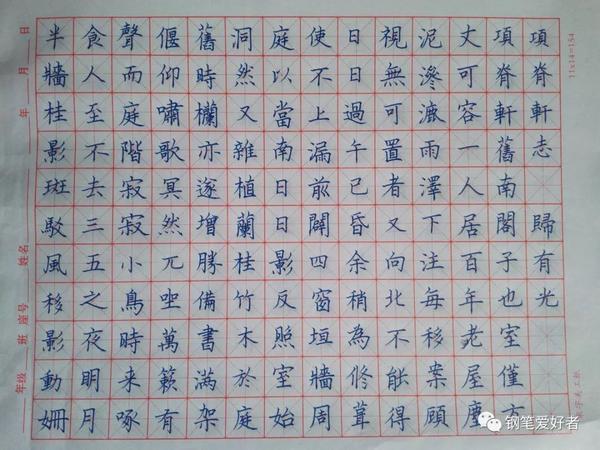 項脊軒志 歸有光
項脊軒舊南閣子也室僅方
丈可容一人居百年老屋塵
泥滲漉雨澤下注每移案顧
視無可置者又向北不能得
日日過午已昏余稍為修葺
使不上漏前闢四窗垣牆周
庭以當南日日影反照室始
洞然又雜植蘭桂竹木於庭
舊時欄亦遂增勝備書滿架
偃仰嘯歌冥然兀坐萬籟有
聲而庭階寂寂小鳥時來啄
食人至不去三五之夜明月
半牆桂影斑駁風移影動姍
年级 班 座号 姓名 年 月 日
11x14=154
钢笔爱好者